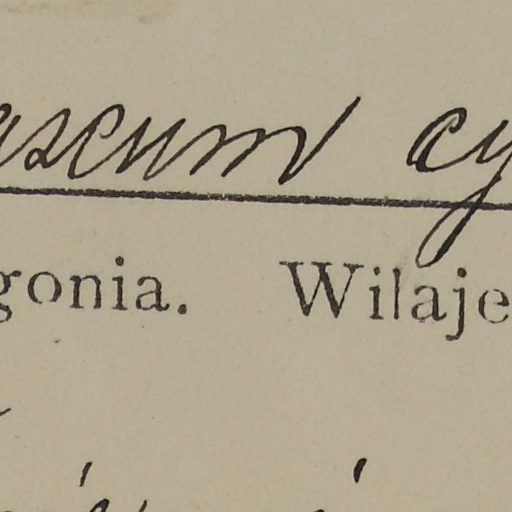 ascum cy
gonia. Wilaje